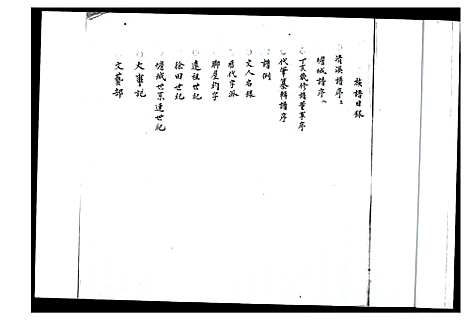 族譜目錄
清溪譜序
嶦城譜序
丁亥歲修譜董事序
代筆纂輯譜序
譜例
文人名錄
歷代字派
聯屋鈞字
遠祖世紀
徐田世紀
嶦城世系建世紀
大事記
文藝部